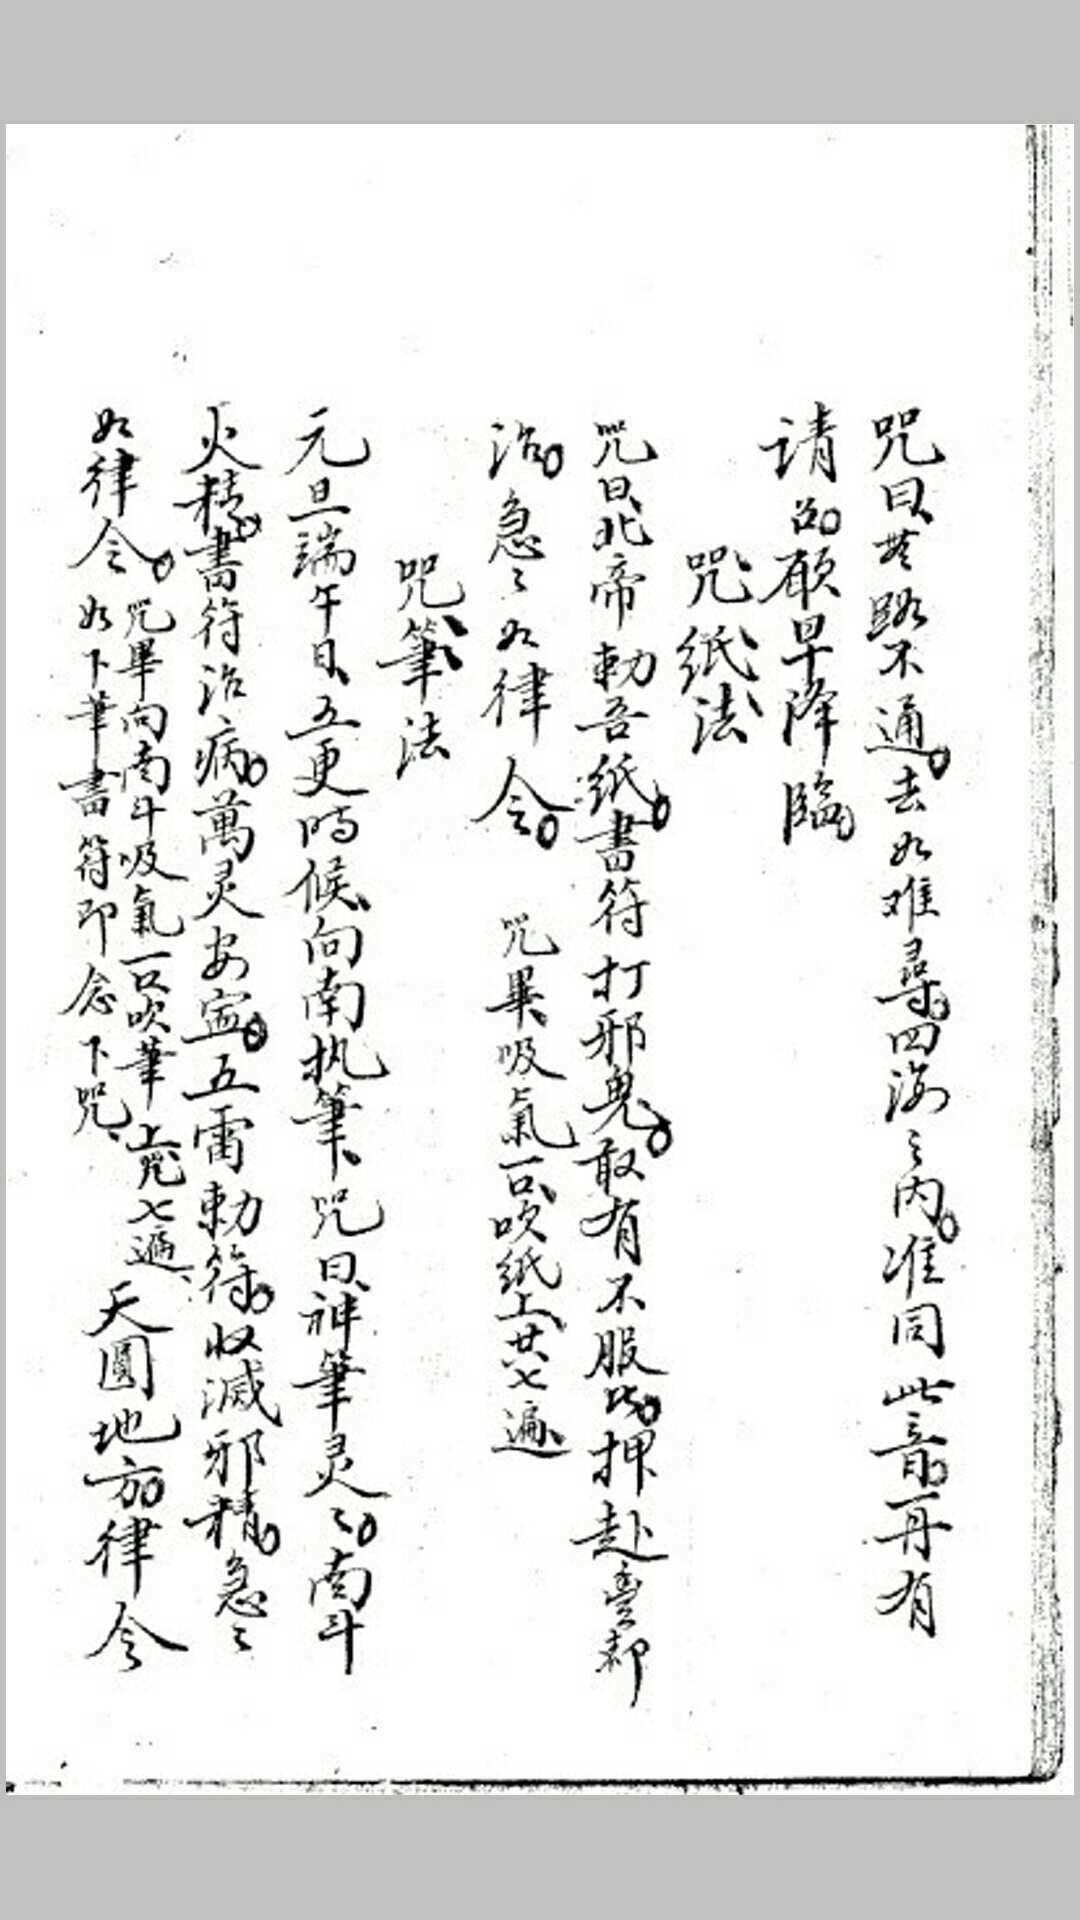 咒曰無路不通去如难尋四海之內准同此音再有
请召願早降臨
咒紙法
咒曰北帝勅吾紙書符打邪鬼敢有不服皆押赴豊都
治急〻如律令 咒畢吸氣一口吹纸上共七遍
咒筆法
元旦端午日五更時候向南执筆咒曰神筆灵〻南斗
火精書符治病萬灵安寧五雷勅符收滅邪精急〻
如律令 咒畢向南斗吸氣一口吹筆上咒七遍
如下筆書符即念下咒 天圓地方律令